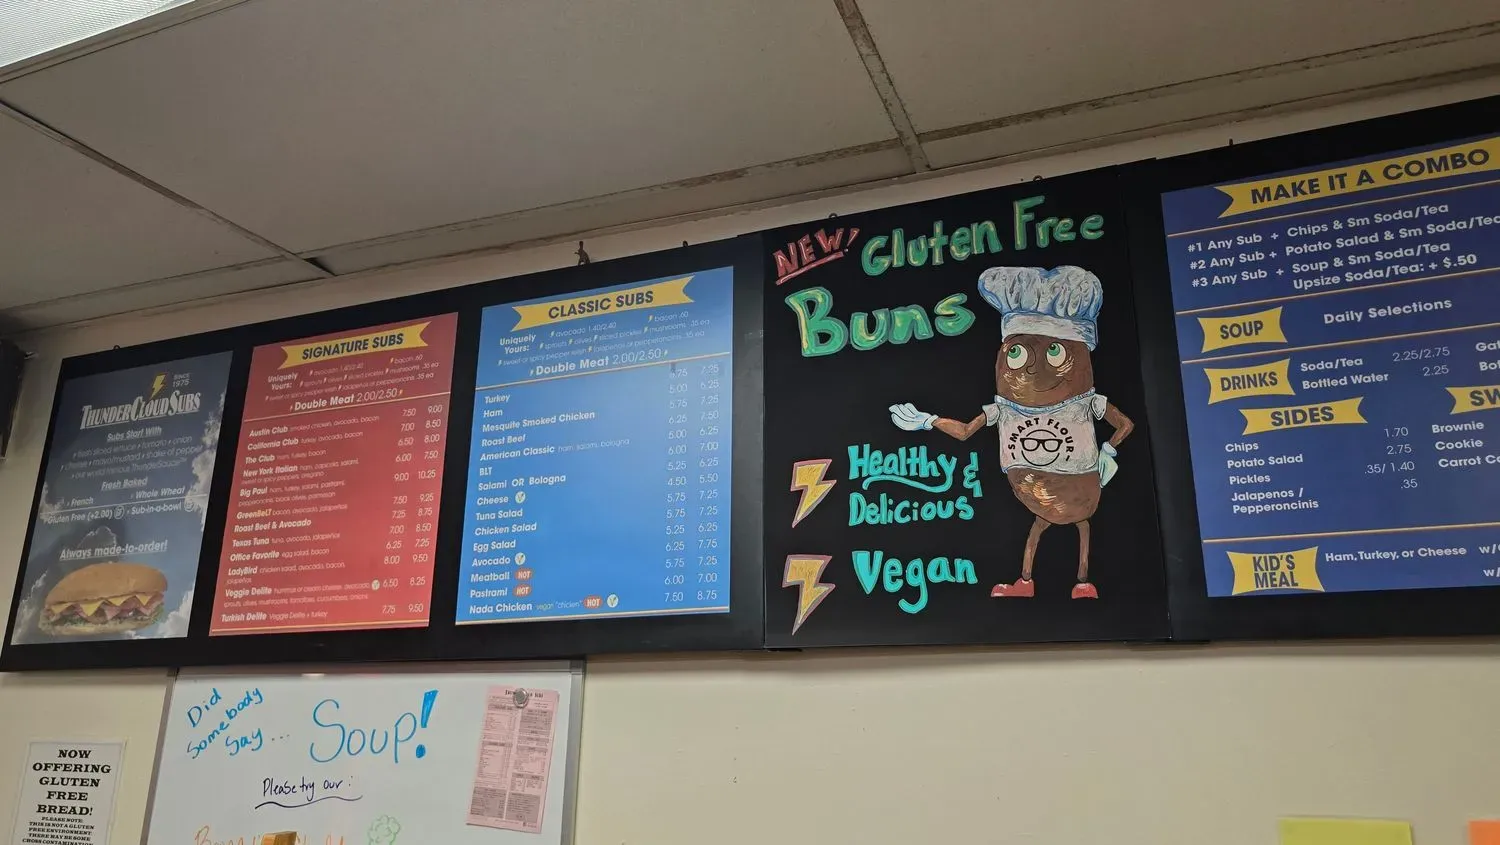 SINCE
1975
THUNDERCLOUDSUBS
Subs Start With
Fresh Baked
French
Whole Wheat
Gluten Free (+2.00)
Sub-in-a-bowl
Always made-to-order!
SIGNATURE SUBS
Uniquely
Yours:
avocado 1.40/2.40
bacon .60
sprouts olives sliced pickles mushrooms .35 ea
sweet or spicy pepper relish jalapenos or pepperoncinis .35 ea
Double Meat 2.00/2.50
Austin Club smoked chicken, avocado, bacon 7.50 9.00
California Club turkey, avocado, bacon 7.00 8.50
The Club ham, turkey, bacon 6.50 8.00
New York Italian ham, capicola, salami, 6.00 7.50
Big Papi ham, turkey, salami, pastrami, 9.00 10.25
pepperoncinis, black olives, parmesan
GreenBelt bacon, avocado, jalapeños 7.50 9.25
Roast Beef & Avocado 7.25 8.75
Texas Tuna tuna, avocado, jalapeños 7.00 8.50
Office Favorite egg salad, bacon 6.25 7.25
LadyBird chicken salad, avocado, bacon, 8.00 9.50
jalapeños
Veggie Delite hummus or cream cheese, avocado 6.50 8.25
sprouts, olives, mushrooms, tomatoes, cucumbers, onions
Turkish Delite Veggie Delite + turkey 7.75 9.50
CLASSIC SUBS
Uniquely
Yours:
avocado 1.40/2.40
bacon .60
sprouts olives sliced pickles mushrooms .35 ea
sweet or spicy pepper relish jalapeños or pepperoncinis .35 ea
Double Meat 2.00/2.50
Turkey 7.25
Ham 5.00 6.25
Mesquite Smoked Chicken 5.75 7.25
Roast Beef 6.25 7.50
American Classic ham, salami, bologna 5.00 6.25
BLT 6.00 7.00
Salami OR Bologna 5.25 6.25
Cheese 4.50 5.50
Tuna Salad 5.75 7.25
Chicken Salad 5.75 7.25
Egg Salad 5.25 6.25
Avocado 6.25 7.75
Meatball HOT 5.75 7.25
Pastrami HOT 6.00 7.00
Nada Chicken vegan "chicken" HOT 7.50 8.75
NEW! Gluten Free
Buns
SMART FLOUR
Healthy &
Delicious
Vegan
MAKE IT A COMBO
#1 Any Sub + Chips & Sm Soda/Tea
#2 Any Sub + Potato Salad & Sm Soda/Tea
#3 Any Sub + Soup & Sm Soda/Tea
Upsize Soda/Tea: + $.50
SOUP
Daily Selections
DRINKS
Soda/Tea 2.25/2.75
Bottled Water 2.25
SIDES
Chips 1.70
Potato Salad 2.75
Pickles .35/ 1.40
Jalapenos / .35
Pepperoncinis
SW
Brownie
Cookie
Carrot
KID'S
MEAL
Ham, Turkey, or Cheese
Did
Somebody
Say...
Soup!
Please try our:
NOW
OFFERING
GLUTEN
FREE
BREAD!
PLEASE NOTE:
THIS IS NOT A GLUTEN
FREE ENVIRONMENT
THERE MAY BE SOME
CROSS CONTAMINATION